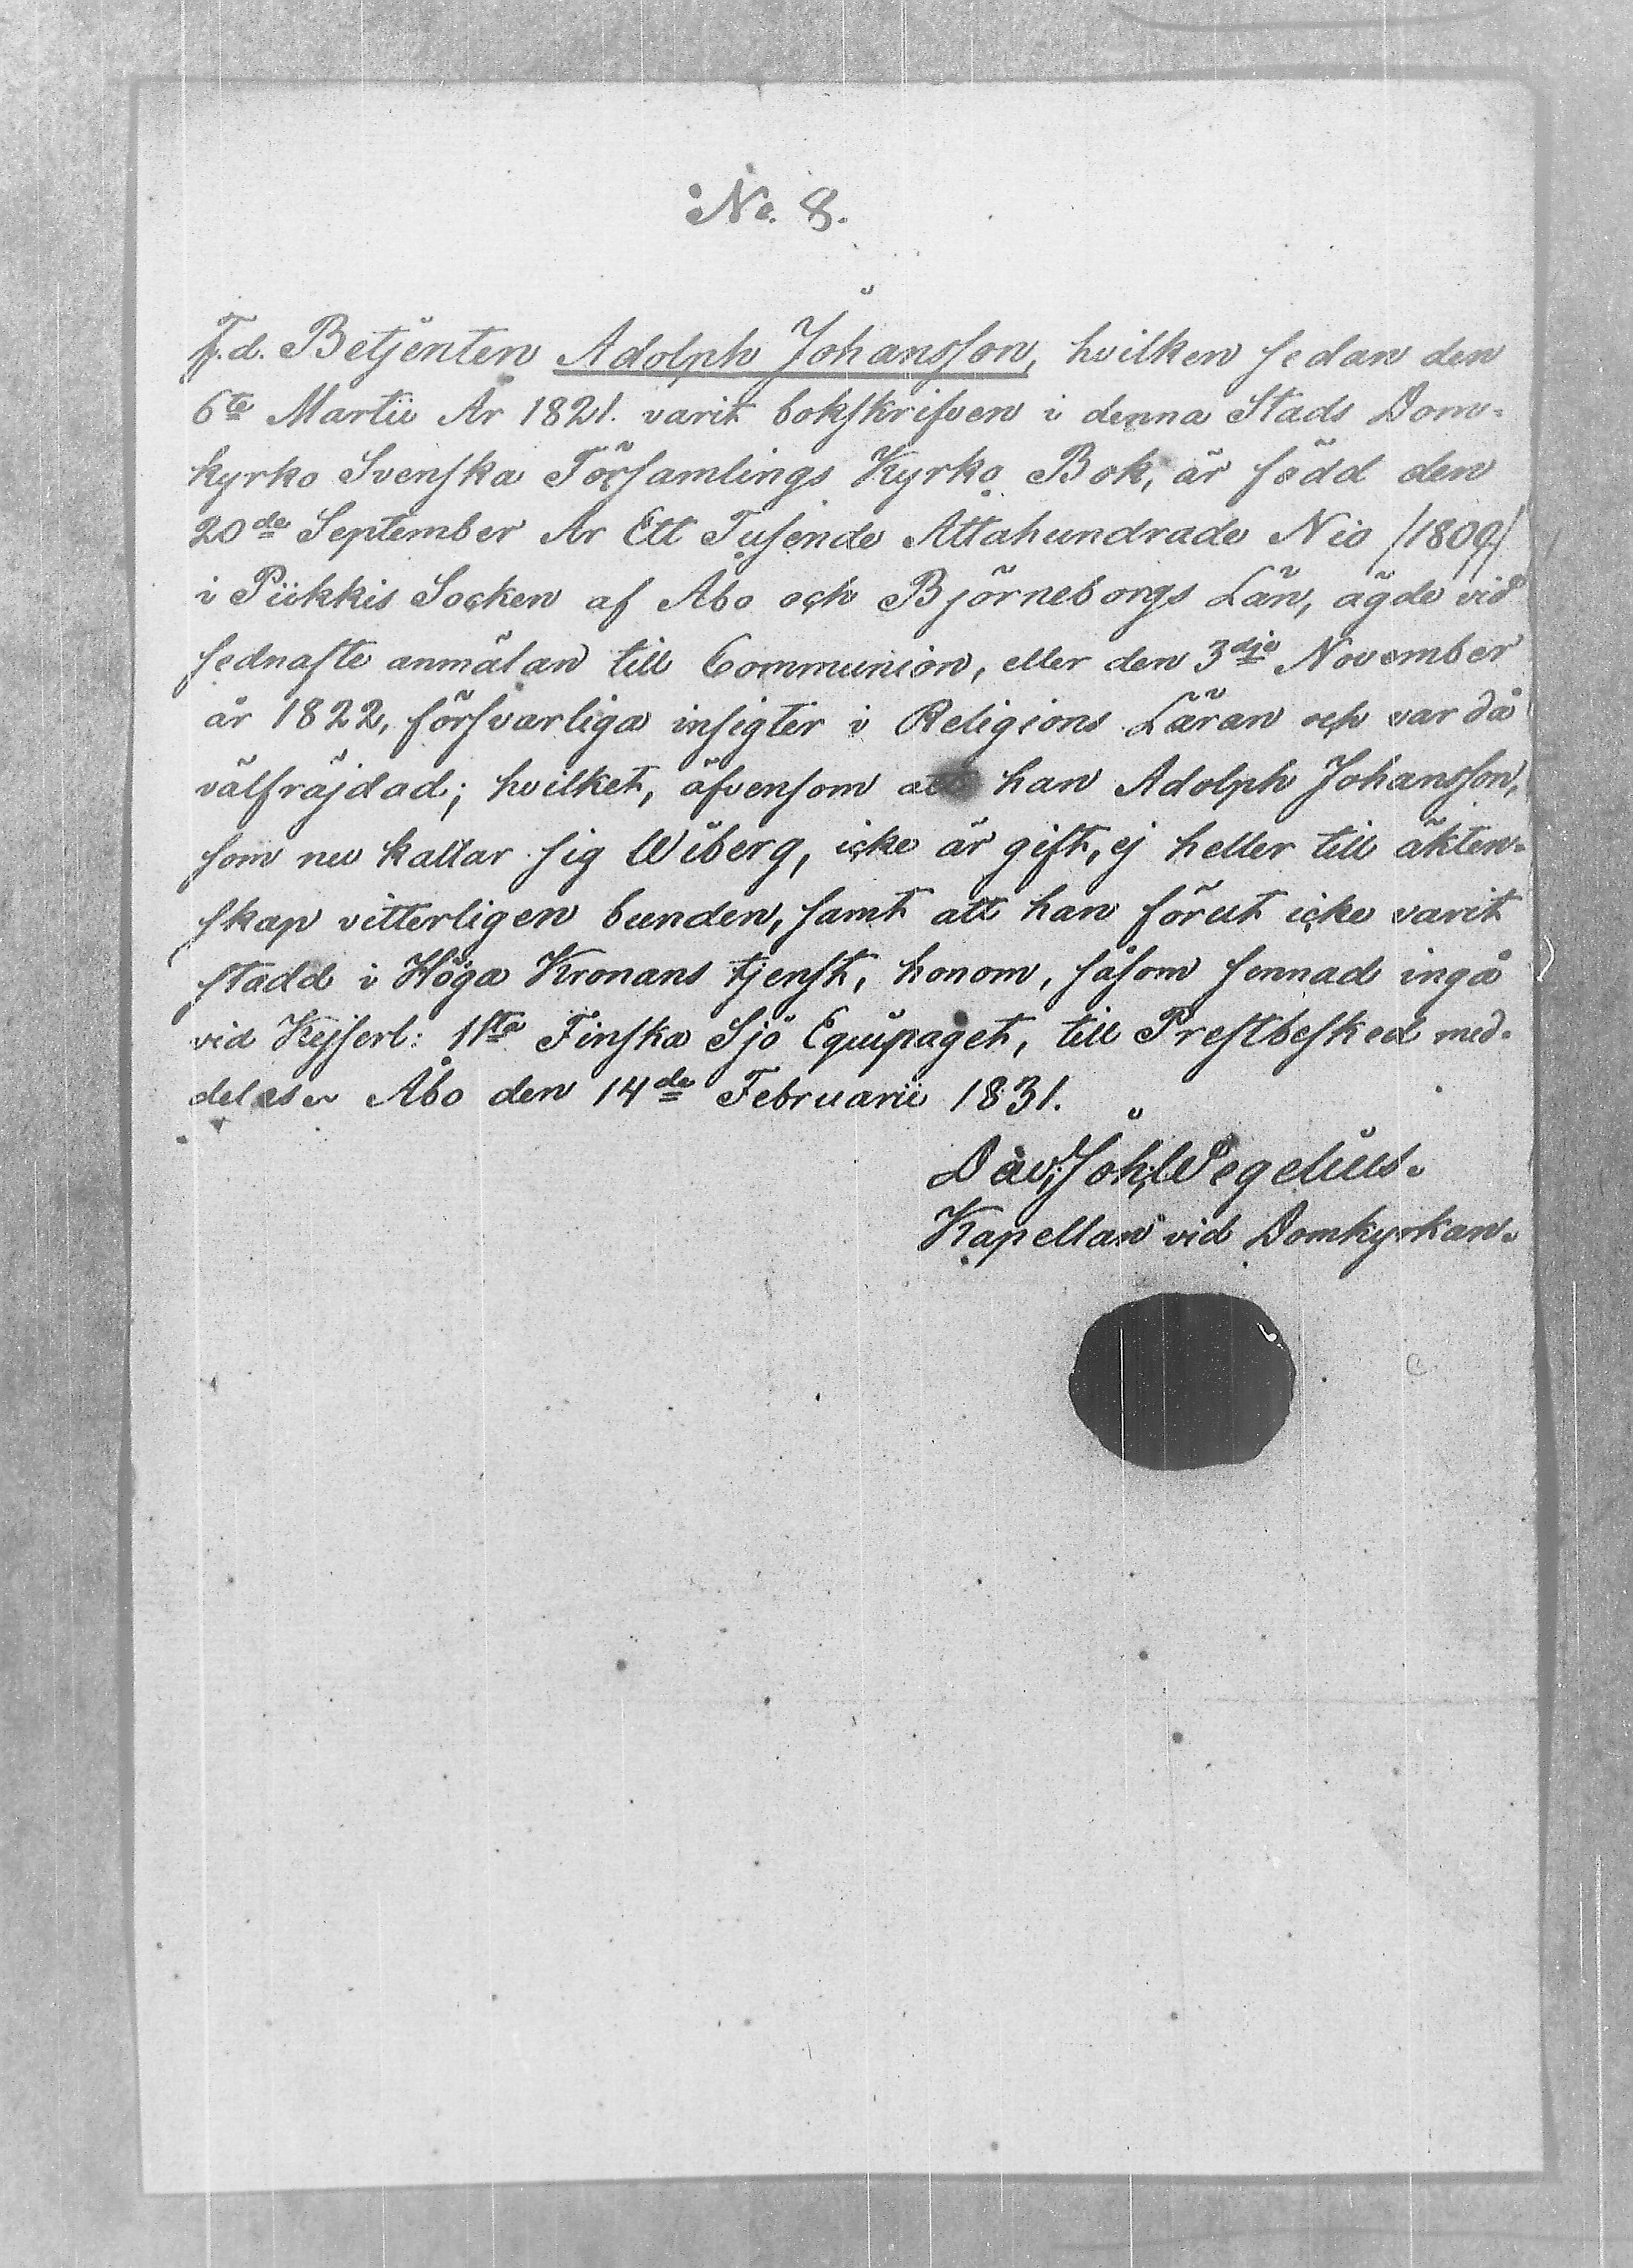 No. 8.
F. d. Betjenten Adolph Johansson, hvilken sedan den
6te Martii År 1821. varit bokskrifven i denna Stads Dom-
kyrko Svenska Församlings Kyrko Bok, är född den
20de September År Ett Tusende Åttahundrade Nio /1809/
i Piikkis Socken af Åbo och Björneborgs Län, ägde vid
sednaste anmälan till Communion, eller den 3dje November
år 1822, försvarliga insigter i Religions Läran och var då
välfräjdad; hvilket, äfvensom att han Adolph Johansson,
som nu kallar sig Wiberg, icke är gift, ej heller till äkten-
skap vitterligen bunden, samt att han förut icke varit
stadd i Höga Kronans tjenst, honom, såsom sinnad ingå
vid Kejserl: 1sta Finska Sjö Equipaget, till Prestbesked med-
deles. Åbo den 14de Februarii 1831.
Dav: Joh: Wegelius.
Kapellan vid Domkyrkan.